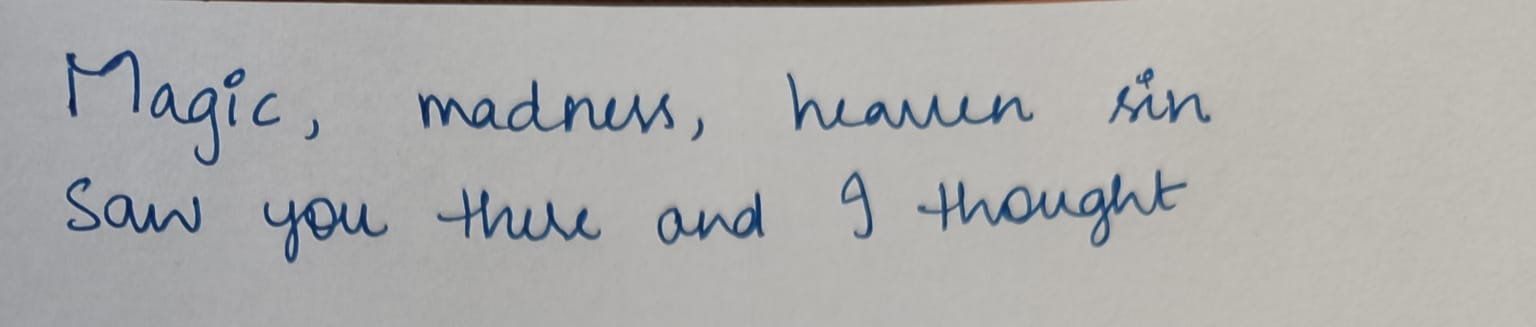 Magic, madness, heaven sin
Saw you there and I thought